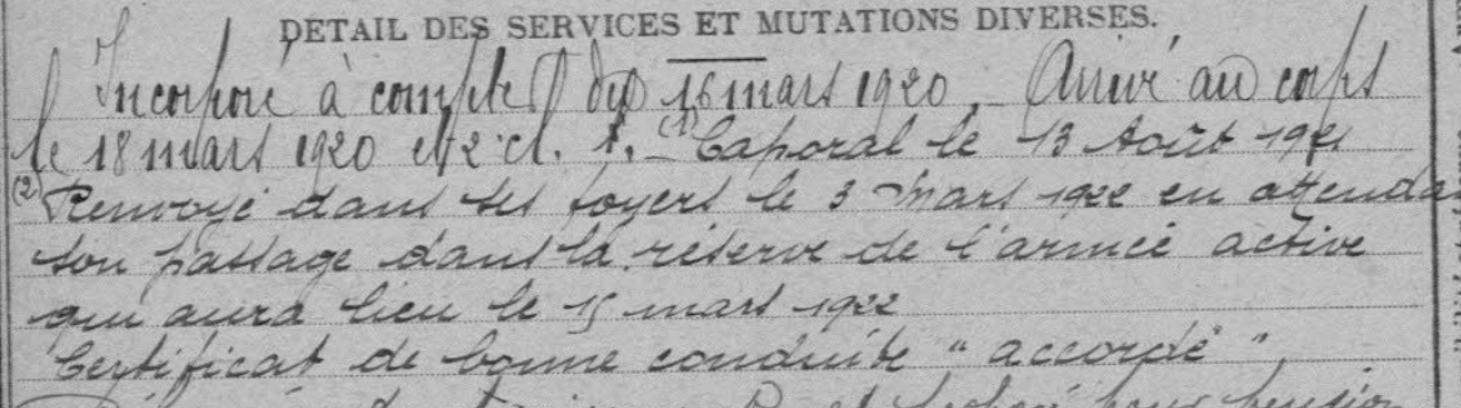 DETAIL DES SERVICES ET MUTATIONS DIVERSES.
Incorporé à compter du 16 mars 1920. Arrivé au corps
le 18 mars 1920 et 2e cl. (1) Caporal le 13 Août 1921
(2) Renvoyé dans ses foyers le 3 Mars 1922 en attenda
son passage dans la réserve de l'armée active
qui aura lieu le 15 mars 1922
Certificat de bonne conduite "accordé"
pour pension